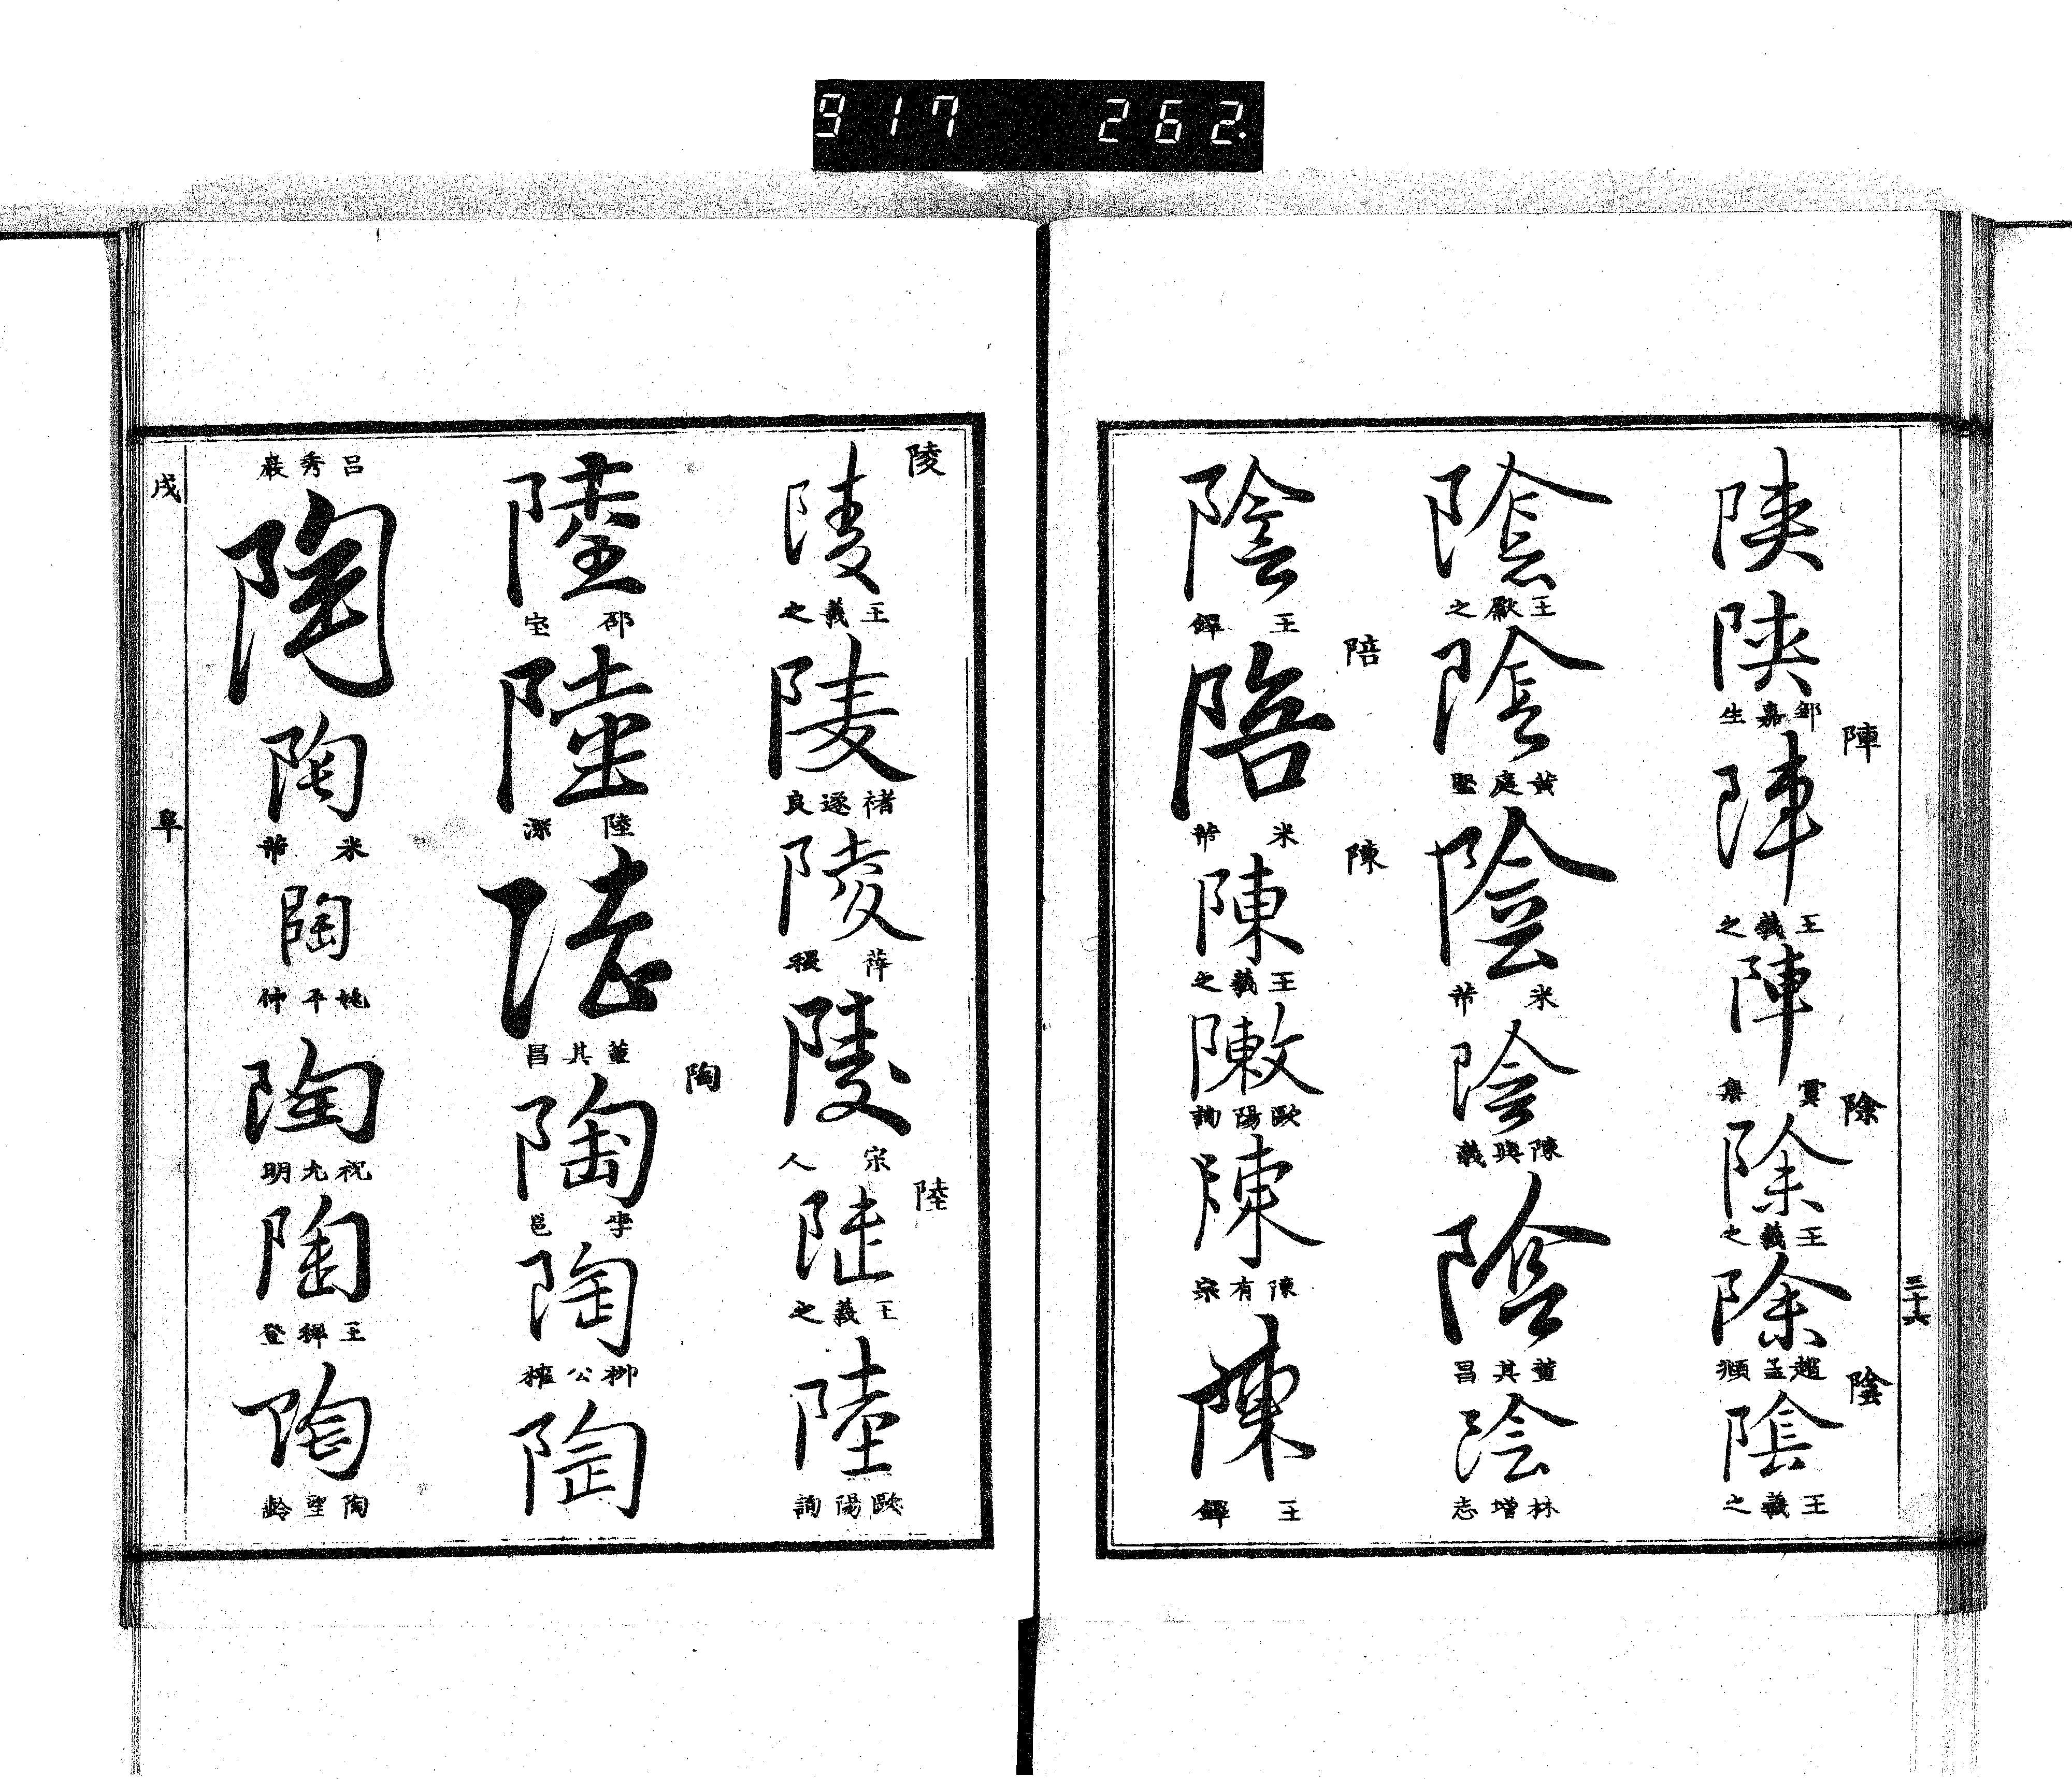 917 262.
陝
陝
鄒嘉生
陣
陣
王羲之
陣
虞集
除
除
王羲之
除
趙孟頫
陰
陰
王羲之
三十六
陰
王獻之
陰
黃庭堅
陰
米芾
陰
陳與義
陰
董其昌
陰
林增志
陰
王鐸
陪
陪
米芾
陳
陳
王羲之
敶
歐陽詢
陳
陳有宗
陳
王鐸
陵
陵
王羲之
陵
褚遂良
陵
薛稷
陵
宗人
陸
陸
王羲之
陸
歐陽詢
陸
邵宝
陸
陸深
陸
董其昌
陶
陶
李邕
陶
柳公權
陶
呂秀巖
陶
陶
米芾
陶
姚平仲
陶
祝允明
陶
王穉登
陶
陶望齡
戌
阜